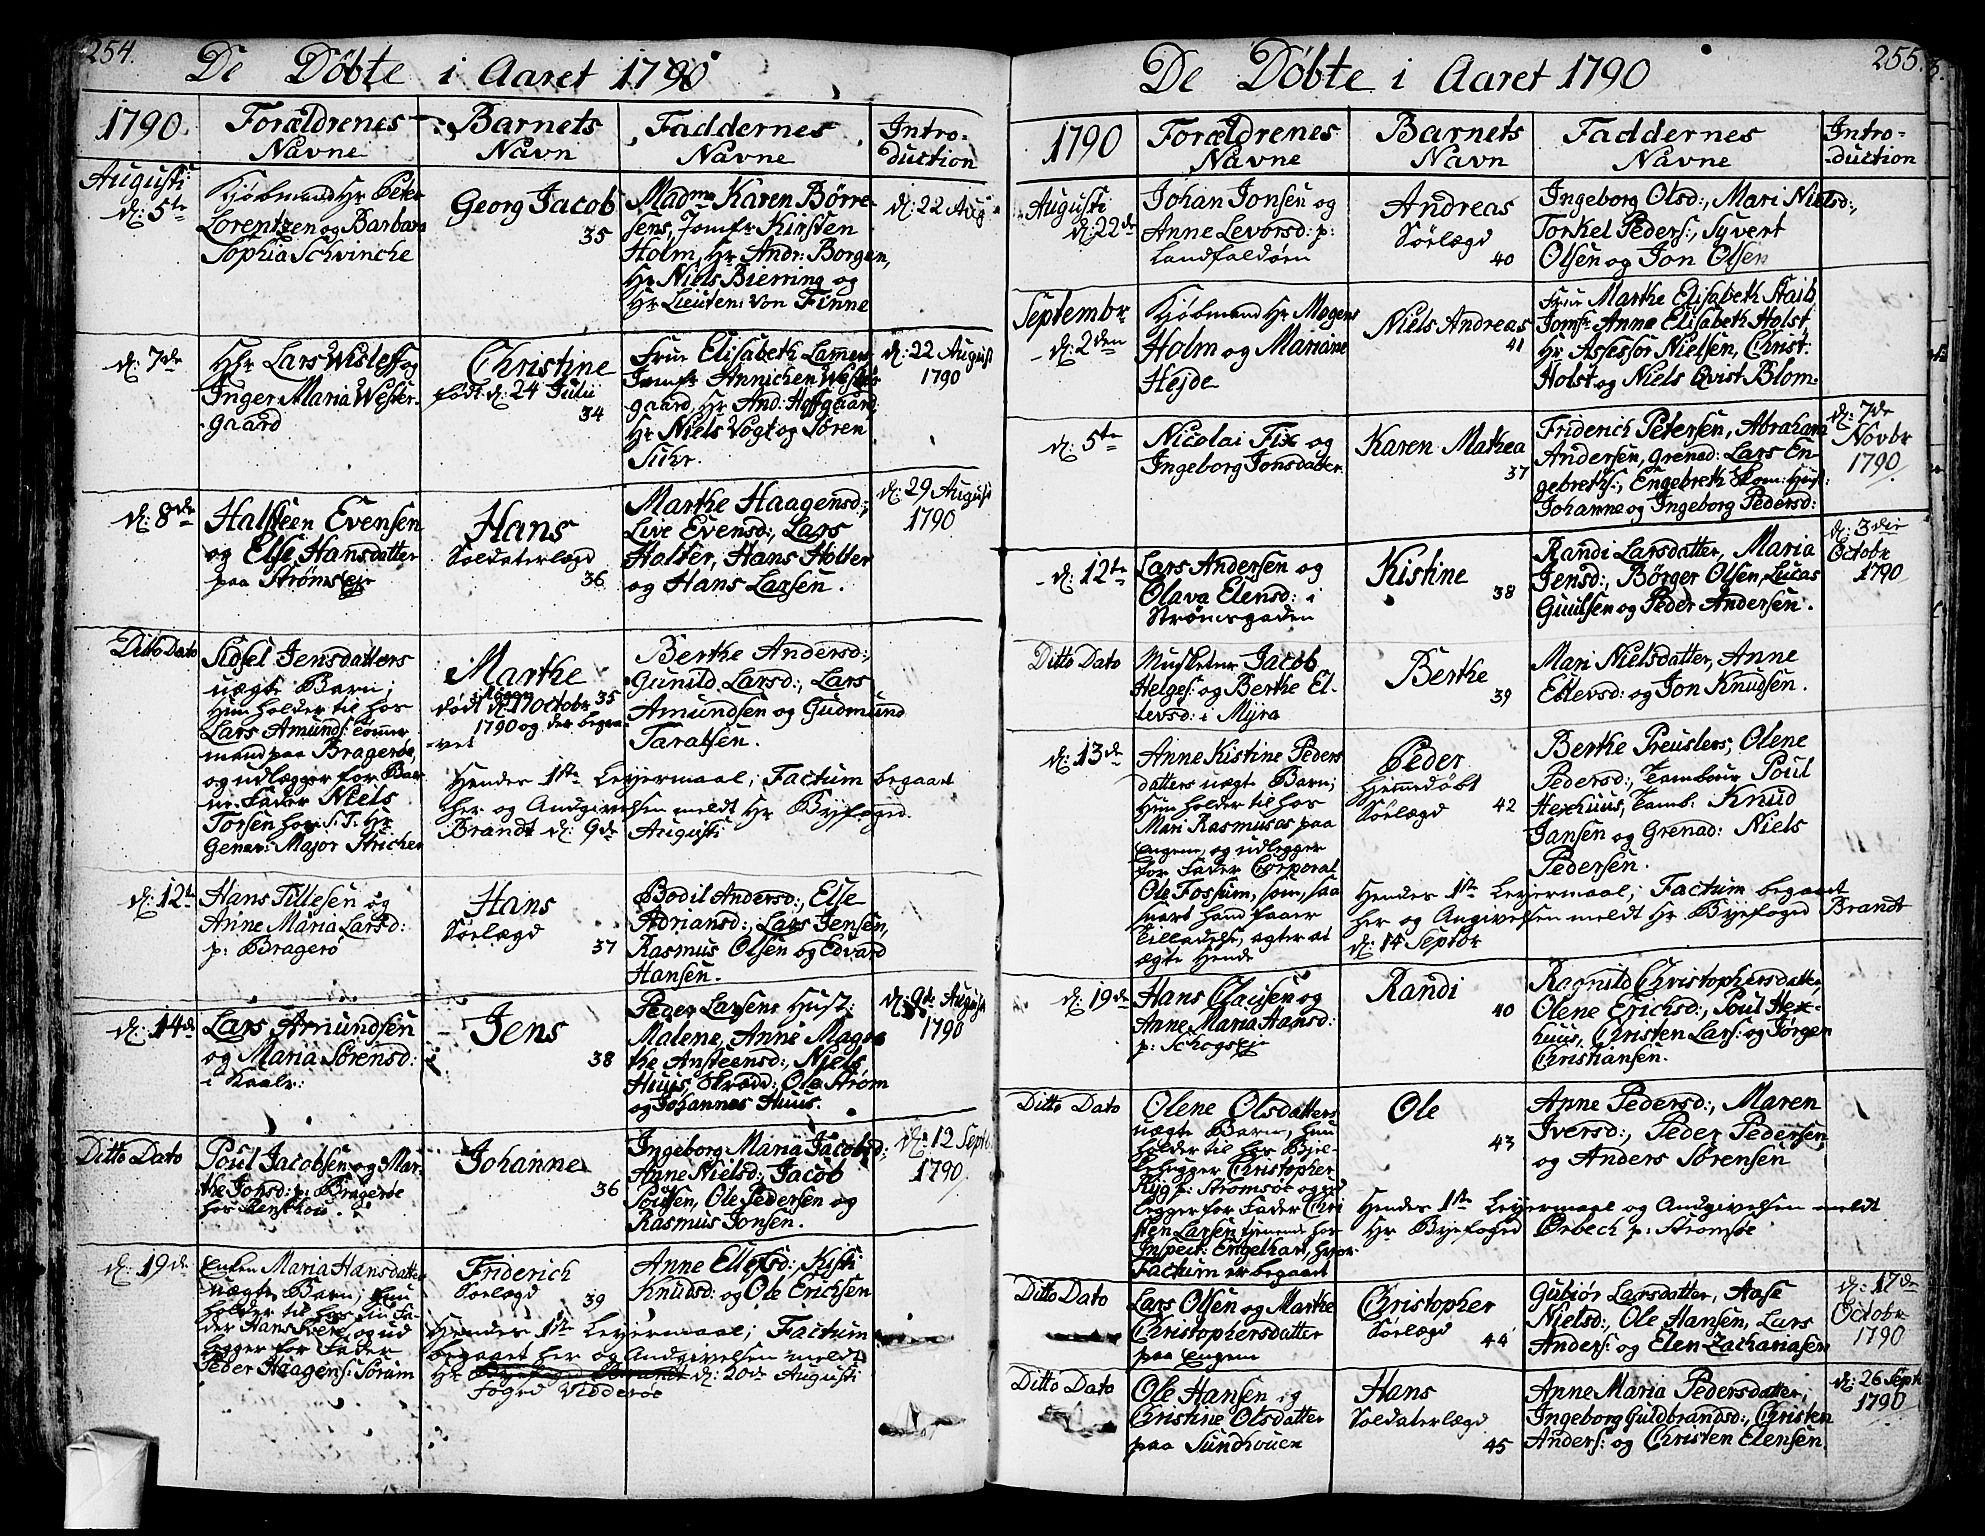 254.
De Döbte i Aaret 1790
1790.
Forældrenes Navne
Barnets Navn
Faddernes Navne
Intro-duction
Augusti
d: 5te
Kjöbmand Hr Peter
Lorentzen og Barbara
Sophia Schvincke
Georg Jacob
35
Madme Karen Börre-
sens, Jomfr Kirsten
Holm, Hr Andr: Borgen,
Hr Niels Bierring og
Hr Lieuten: von Finne
d: 22 Aug
d: 7de
Hr Lars Wisleff og
Inger Maria Wester-
gaard
Christine
födt d: 24 Julii
34
Frue Elisabeth Lamers
Jomfr Annichen Wester-
gaard, Hr And: Hoffgaard,
Hr Niels Vogt og Sören
Suhr.
d: 22 August
1790
d: 8de
Halsteen Evensen
og Else Hansdatter
paa Strömsöe
Hans
Soldaterlægd
36
Marthe Haagensd:,
Live Evensd:, Lars
Holter, Hans Holter
og Hans Larsen.
d: 29 August
1790
Ditto Dato
Sidsel Jensdatters
uægte Barn;
Hun holder til hos
Lars Amunds: Tömmer
mand paa Brageröe,
og udlægger for Bar-
ne-Fader Niels
Torsen hos S. T. Hr
Gener: Major Stricker
Marthe
35
död d: 17 Octobr
1790 og der begra-
vet
Berthe Andersd:,
Gunild Larsd:, Lars
Amundsen og Gudmund
Taraldsen.
Hendes 1ste Leyermaal; Factum begaaet
her og Andgivelsen meldt Hr Byefoged
Brandt d: 9de Augusti
d: 12te
Hans Tillesen og
Anne Maria Larsd:
p: Bragerö
Hans
Söelægd
37
Bodil Andersd:, Else
Adriansd:, Lars Jensen,
Rasmus Olsen og Edvard
Hansen.
d: 14de
Lars Amundsen
og Maria Sörensd:
Jens
38
Peder Larsens Hust:
Malene, Anne Magre-
the Ansteensd:, Niels
Huus, Skrædd: Ole Ström
og Johannes Huus.
d: 9de August
1790
Ditto Dato
Poul Jacobsen og Mar-
the Jonsd: p: Brageröe
Johanne
36
Ingeborg Maria Jacobsd:,
Anne Nielsd:, Jacob
Poulsen, Ole Pedersen og
Rasmus Jonsen.
d: 12 Septbr
1790
d: 19de
Enken Maria Hansdatters
uægte Barn; hun
holder til hos sin Fa-
der Hans Svend, og ud
legger for Fader
Peder Haagens: Sörum
Friderich
Söelægd
39
Anne Ellefsd:, Kisti
Knudsd: og Ole Erichsen
Hendes 1ste Leyermaal; Factum
begaaet her og Andgivelsen meldt
Hr Byefoged Brandt d: 20de Augusti
foged Vidderöe
255.
De Döbte i Aaret 1790
1790
Forældrenes Navne
Barnets Navn
Faddernes Navne
Intro-duction
Augusti
d: 22de
Johan Jonsen og
Anne Levorsd: p:
Landfaldöen
Andreas
Söelægd
40
Ingeborg Olsd:, Mari Nielsd:,
Torkel Peders:, Syvert
Olsen og Jon Olsen
Septembr
d: 2den
Kjöbmand Hr Mogens
Holm og Mariane
Hejde
Niels Andreas
41
Frue Marthe Elisabeth Staib
Jomfr Anne Elisabeth Holst
Hr Assessor Nielsen, Christ:
Holst og Niels Qvist Blom
d: 5te
Nicolai Fix og
Ingeborg Jonsdatter
Karen Mathea
37
Friderich Petersen, Abraham
Andersen, Grenad: Lars En-
gebreths:, Engebreth Skom: Hust:
Johanne og Ingeborg Pedersd:
d: 7de
Novbr
1790
d: 12te
Lars Andersen og
Olava Elensd: i
Strömsgaden
Kistine
38
Randi Larsdatter, Maria
Jensd:, Börger Olsen, Lucas
Guulsen og Peder Andersen.
d: 3die
Octobr
1790
Ditto Dato
Musketeer Jacob
Helges: og Berthe El-
levsd: i Myra
Berthe
39
Mari Nielsdatter, Anne
Ellevsd: og Jon Knudsen.
d: 13de
Anne Kistine Peders
datters uægte Barn;
Hun holder til hos
Mari Rasmusas paa
Engene, og udlegger
for Fader Corporal
Ole Fossum, som, saa
snart hand faaer
Tilladelse, agter at
ægte Hende
Peder
Hjemmedöbt
Söelægd
42
Berthe Preuslers, Olene
Pedersd:, Tambour Poul
Hexhuus, Tamb: Knud
Jansen og Grenad: Niels
Pedersen.
Hendes 1ste Leyermaal; Factum begaaet
her og Angivelsen meldt Hr Byefoged Brandt
d: 14 Septbr
d: 19de
Hans Clausen og
Anne Maria Hansd:
p: Schogseje
Randi
40
Ragnild Christophersdatter,
Olene Ericksd:, Poul Hex-
huus, Christen Lars: og Jörgen
Christiansen.
Ditto Dato
Olene Olsdatters
uægte Barn, hun
holder til hos Bjel-
kehugger Christopher
Ryg p: Strömsöe og ud
legger for Fader Chri
sten Larsen tjenende hos
Inspect: Engelhart, hvor
Factum er begaaet
Ole
43
Anne Pedersd:, Maren
Iversd:, Peder Pedersen
og Anders Sörensen
Hendes 1ste Leyermaal og Andgivelsen meldt
Hr Byefoged Örbech p: Strömsöe
Ditto Dato
Lars Olsen og Marthe
Christophersdatter
paa Engene
Christopher
Söelægd
44
Gubiör Larsdatter, Aase
Nielsd:, Ole Hansen, Lars
Anders: og Elen Zachariasen
d: 17de
Octobr
1790
Ditto Dato
Ole Hansen og
Christine Olsdatter
paa Sundhouen
Hans
Soldaterlægd
45
Anne Maria Pedersdatter,
Ingeborg Guldbrandsd:, Christen
Anders: og Christen Elensen.
d: 26 Sept
1790